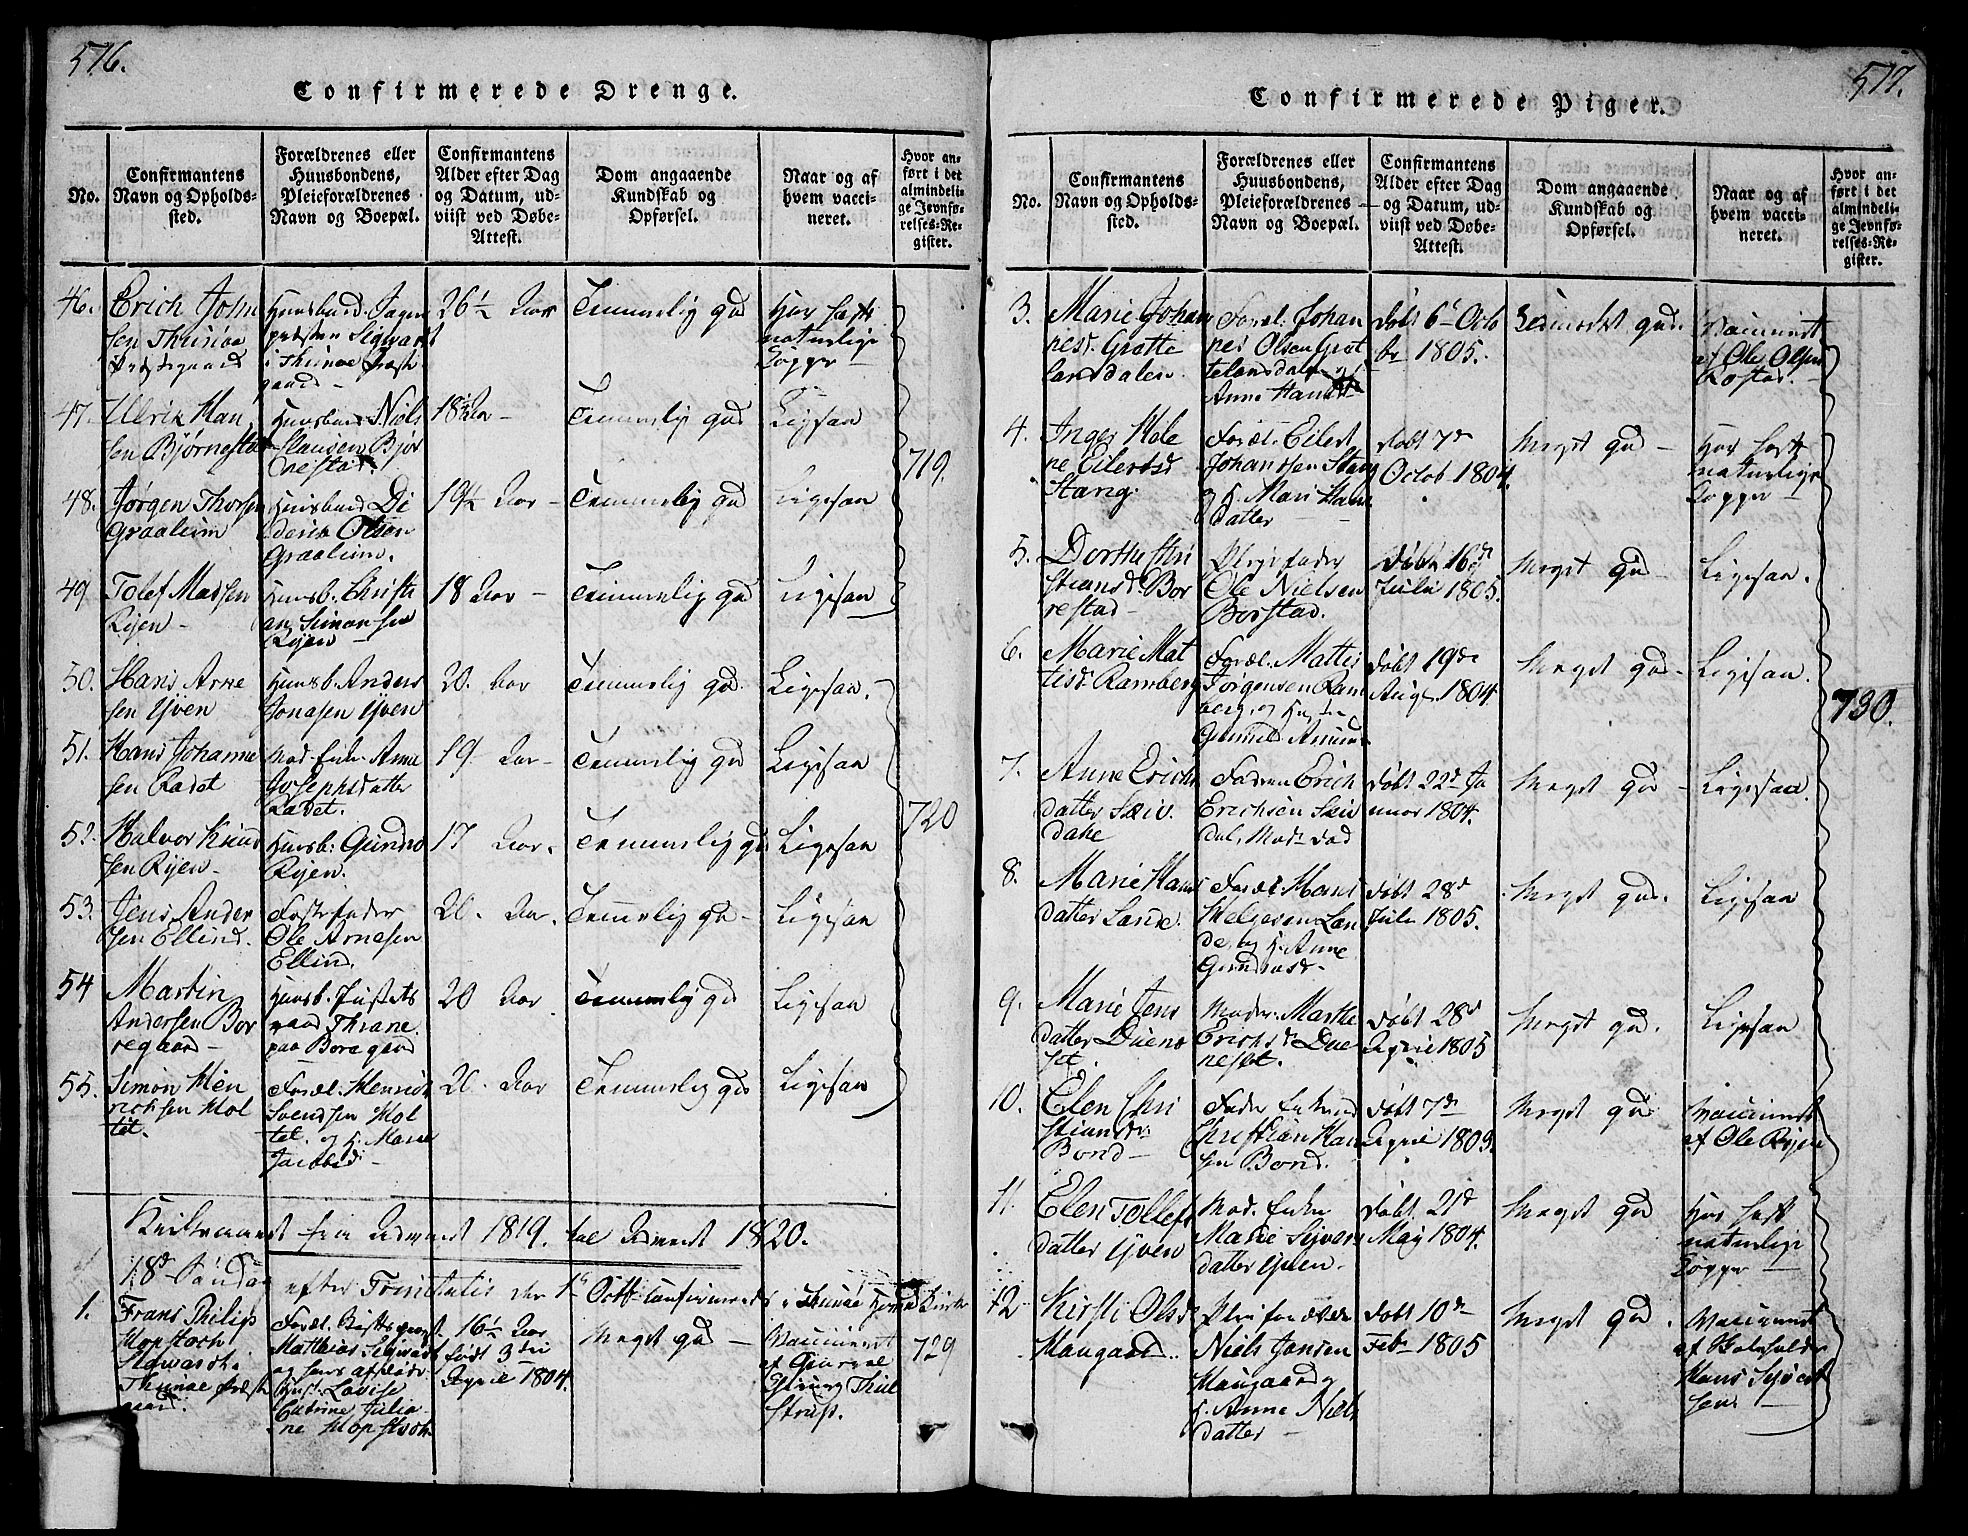 576.
Confirmerede Drenge.
No.
Confirmantens
Navn og Opholds-
sted.
Forældrenes eller
Huusbondens,
Pleieforældrenes
Navn og Boepæl.
Confirmantens
Alder efter Dag
og Datum, ud-
viist ved Døbe-
Attest.
Dom angaaende
Kundskab og
Opførsel.
Naar og af
hvem vacci-
neret.
Hvor an-
ført i det
almindeli-
ge Jevnfø-
relses-Re-
gister.
46.
Erich John
sen Thunøe
Præstegaard
Huusbond
Sigwardt
i Thunøe Præste
gaard
26½ Aar
Temmelig god
Har hafte
naturlige
Kopper
47.
Ulrik Han
sen Bjørnestad
Huusbond Niels
Clausen Bjør
nestad.
18½ Aar
Temmelig god
Ligesaa
719.
48.
Jørgen Thorsen
Graalum
Huusbond Di
derik Olsen
Graalum.
19½ Aar
Temmelig god
Ligesaa
49
Tolef Madsen
Rijen
Huusb. Christi
an Simonsen
Rijen
18 Aar
Temmelig god
Ligesaa
50.
Hans Arne
sen Yven
Huusb. Anders
Jonasen Yven
20. Aar
Temmelig god.
Ligesaa.
51.
Hans Johanne
sen Radet
Mod. Enke Anne
Josephsdatter
Radet.
19. Aar
Temmelig god
Ligesaa
52.
Halvor Knud
sen Ryen
Huusb: Gundro
Rijen.
17 Aar.
Temmelig god
Ligesaa
720
53.
Jens Ander
sen Ellind.
Fosterfader
Ole Arnesen
Ellind.
20. Aar.
Temmelig god
Ligesaa
54
Martin
Andersen Bor
regaard
Huusb. Justits
raad Thrane
paa Boregaard
20 Aar
Temmelig god
Ligesaa
55.
Simon Hen
richsen Hol
tet.
Foræl. Henrich
Svendsen Hol
tet. og H. Marie
Jacobsd.
20. Aar
Temmelig god
Ligesaa
Kirkeaaret fra Advent 1819. til Advent 1820.
18de Søndag efter Trinitatis den 1ste Octbr confirmerede i Thunøe Hoved Kirke
1.
Frans Philip
Hopstoch
Sigwardt.
Thunøe Præste
gaard.
Foræl.
Matthias Sigwardt
og hans afdøde
Hust. Lovise
Cathrine Julia
ne Hopstoch.
16½ Aar
født 3die
April 1804.
Meget god
Vaccineret
af Chirurg
Thuel
Strup.
729
577.
Confirmerede Piger.
No.
Confirmantens
Navn og Opholds-
sted.
Forældrenes eller
Huusbondens,
Pleieforældrenes
Navn og Boepæl.
Confirmantens
Alder efter Dag
og Datum, ud-
viist ved Døbe-
Attest.
Dom angaaende
Kundskab og
Opførsel.
Naar og af
hvem vacci-
neret.
Hvor an-
ført i det
almindeli-
ge Jevnfø-
relses-Re-
gister.
3.
Marie Johan
nesd. Grøtte
landsdalen.
Foræl. Johan
nes Olsen Grøt
telandsdalen og
Anne Hansd.
Døbt 6te Octo
br 1805.
god.
Vaccineret
af Ole Olsen
Rostad.
4.
Inger Hele
ne Eilertsd
Stang.
Foræl. Eilert
Johannsen Stang
og H. Mari Hans
datter
Døbt 7de
Octob 1804.
Meget god
Har hafte
naturlige
Kopper
5.
Dorthe Chri
stiansd. Bor
restad
Pleiefader
Ole Nielsen
Borstad.
Døbt 16de
Julii 1805.
Meget god
Ligesaa.
6.
Marie Mat
tisd. Ramberg
Foræl. Mattis
Jørgensen Ram
berg, og Hustru
Gunnild Amunds
Døbt 19de
Aug. 1804.
Meget god
Ligesaa.
730.
7.
Anne Erichs
datter Skiv
dahl
Fadren Erich
Erichsen Skiv
dal, Modr død
Døbt 22de Ja
nuar 1804.
Meget god
Ligesaa.
8.
Marie Hans
datter Lande.
Foræl Hans
Helgesen Lan
de, og H. Anne
Gundrosd.
Døbt 28de
Juli 1805.
Meget god.
Ligesaa
9.
Marie Jens
datter Duene
set.
Moder. Marthe
Erichsd. Due
neset.
Døbt 28de
April 1805
Meget god.
Ligesaa
10.
Elen Chri
stiansdr.
Bond
Fader Enkemand
Christian Han
sen Bond.
Døbt 7de
April 1805.
Meget god
Vaccineret
af Ole Ryen
11.
Elen Tollefs
datter Yven
Mod. Enke
Marie Sijvers
datter Yven.
Døbt 21de
May 1804.
Meget god
Har hafte
naturlige
Kopper
12
Kirsti Olsd.
Haugaard.
Pleieforældre
Niels Jansen
Haugaard og
H. Anne Niels
datter
Døbt 10de
Febr 1805
Meget god.
Vaccineret
af
Hans Syvert
sen